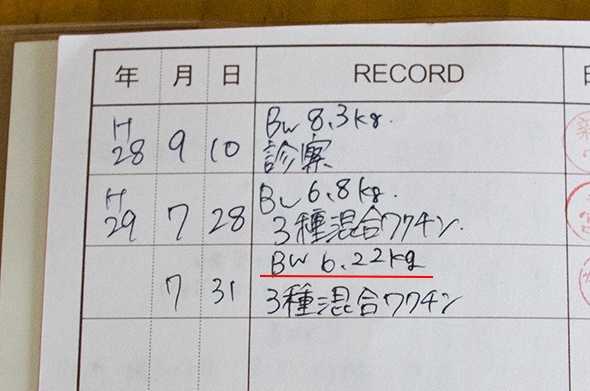 年 月 日 RECORD 日
H BW 8.3kg.
28 9 10 診察
H BW 6.8kg.
29 7 28 3種混合ワクチン.
BW 6.22kg
7 31 3種混合ワクチン